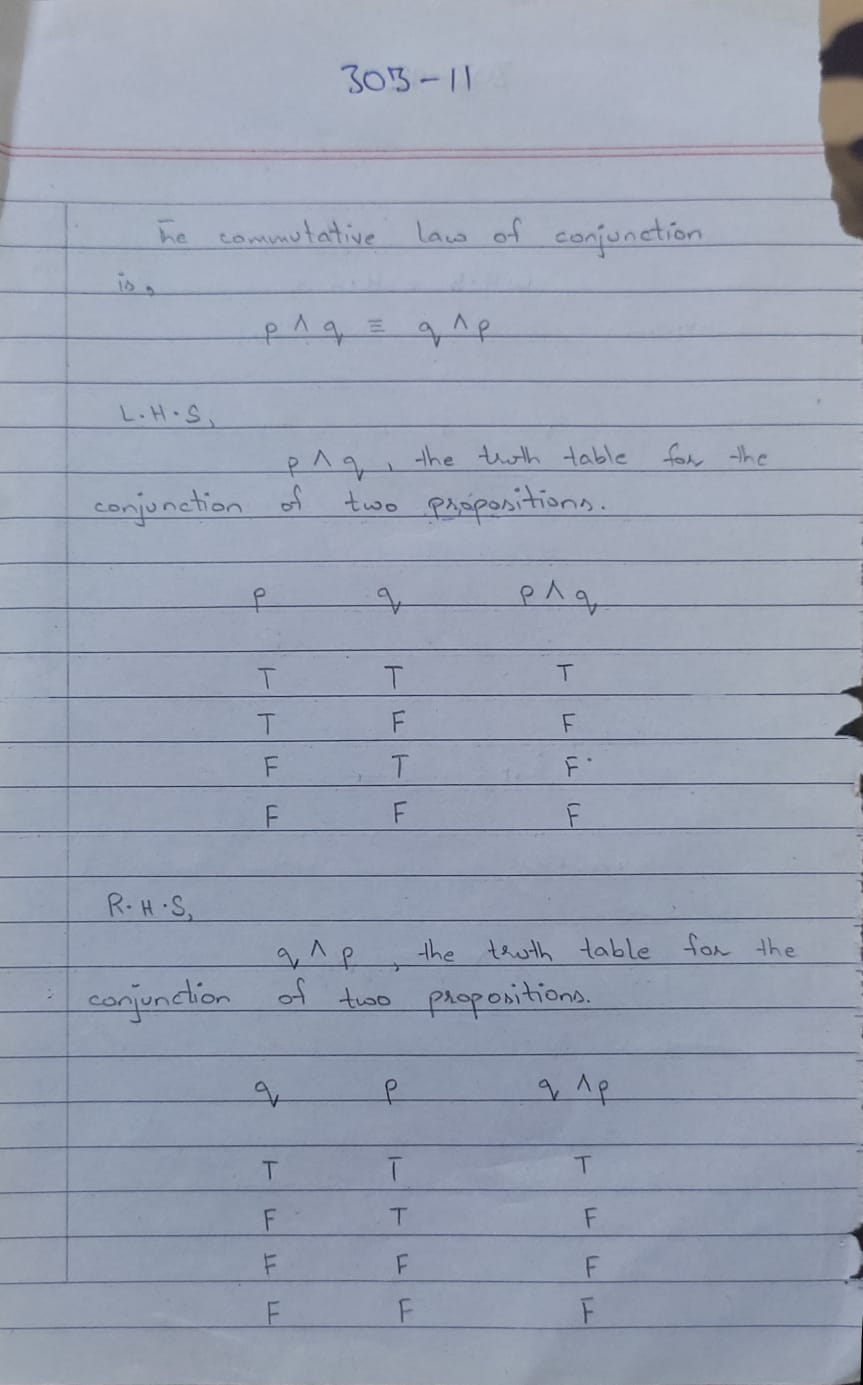 303-11
The commutative law of conjunction
is,
p ∧ q ≡ q ∧ p
L.H.S,
p ∧ q, the truth table for the
conjunction of two propositions.
p q p ∧ q
T T T
T F F
F T F
F F F
R.H.S,
q ∧ p, the truth table for the
conjunction of two propositions.
q p q ∧ p
T T T
F T F
F F F
F F F